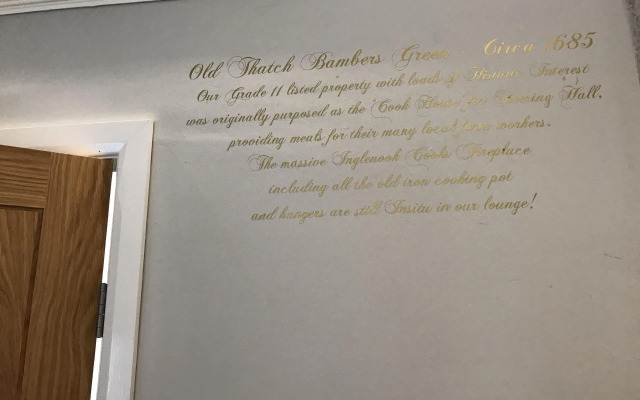 Old Thatch Bambers Green - Circa 1685
Our Grade 11 listed property with loads of Historic Interest
was originally purposed as the Cook House for Hall,
providing meals for their many local farm workers.
The massive Inglenook Cooks Fireplace
including all the old iron cooking pot
and hangers are still Insitu in our lounge!